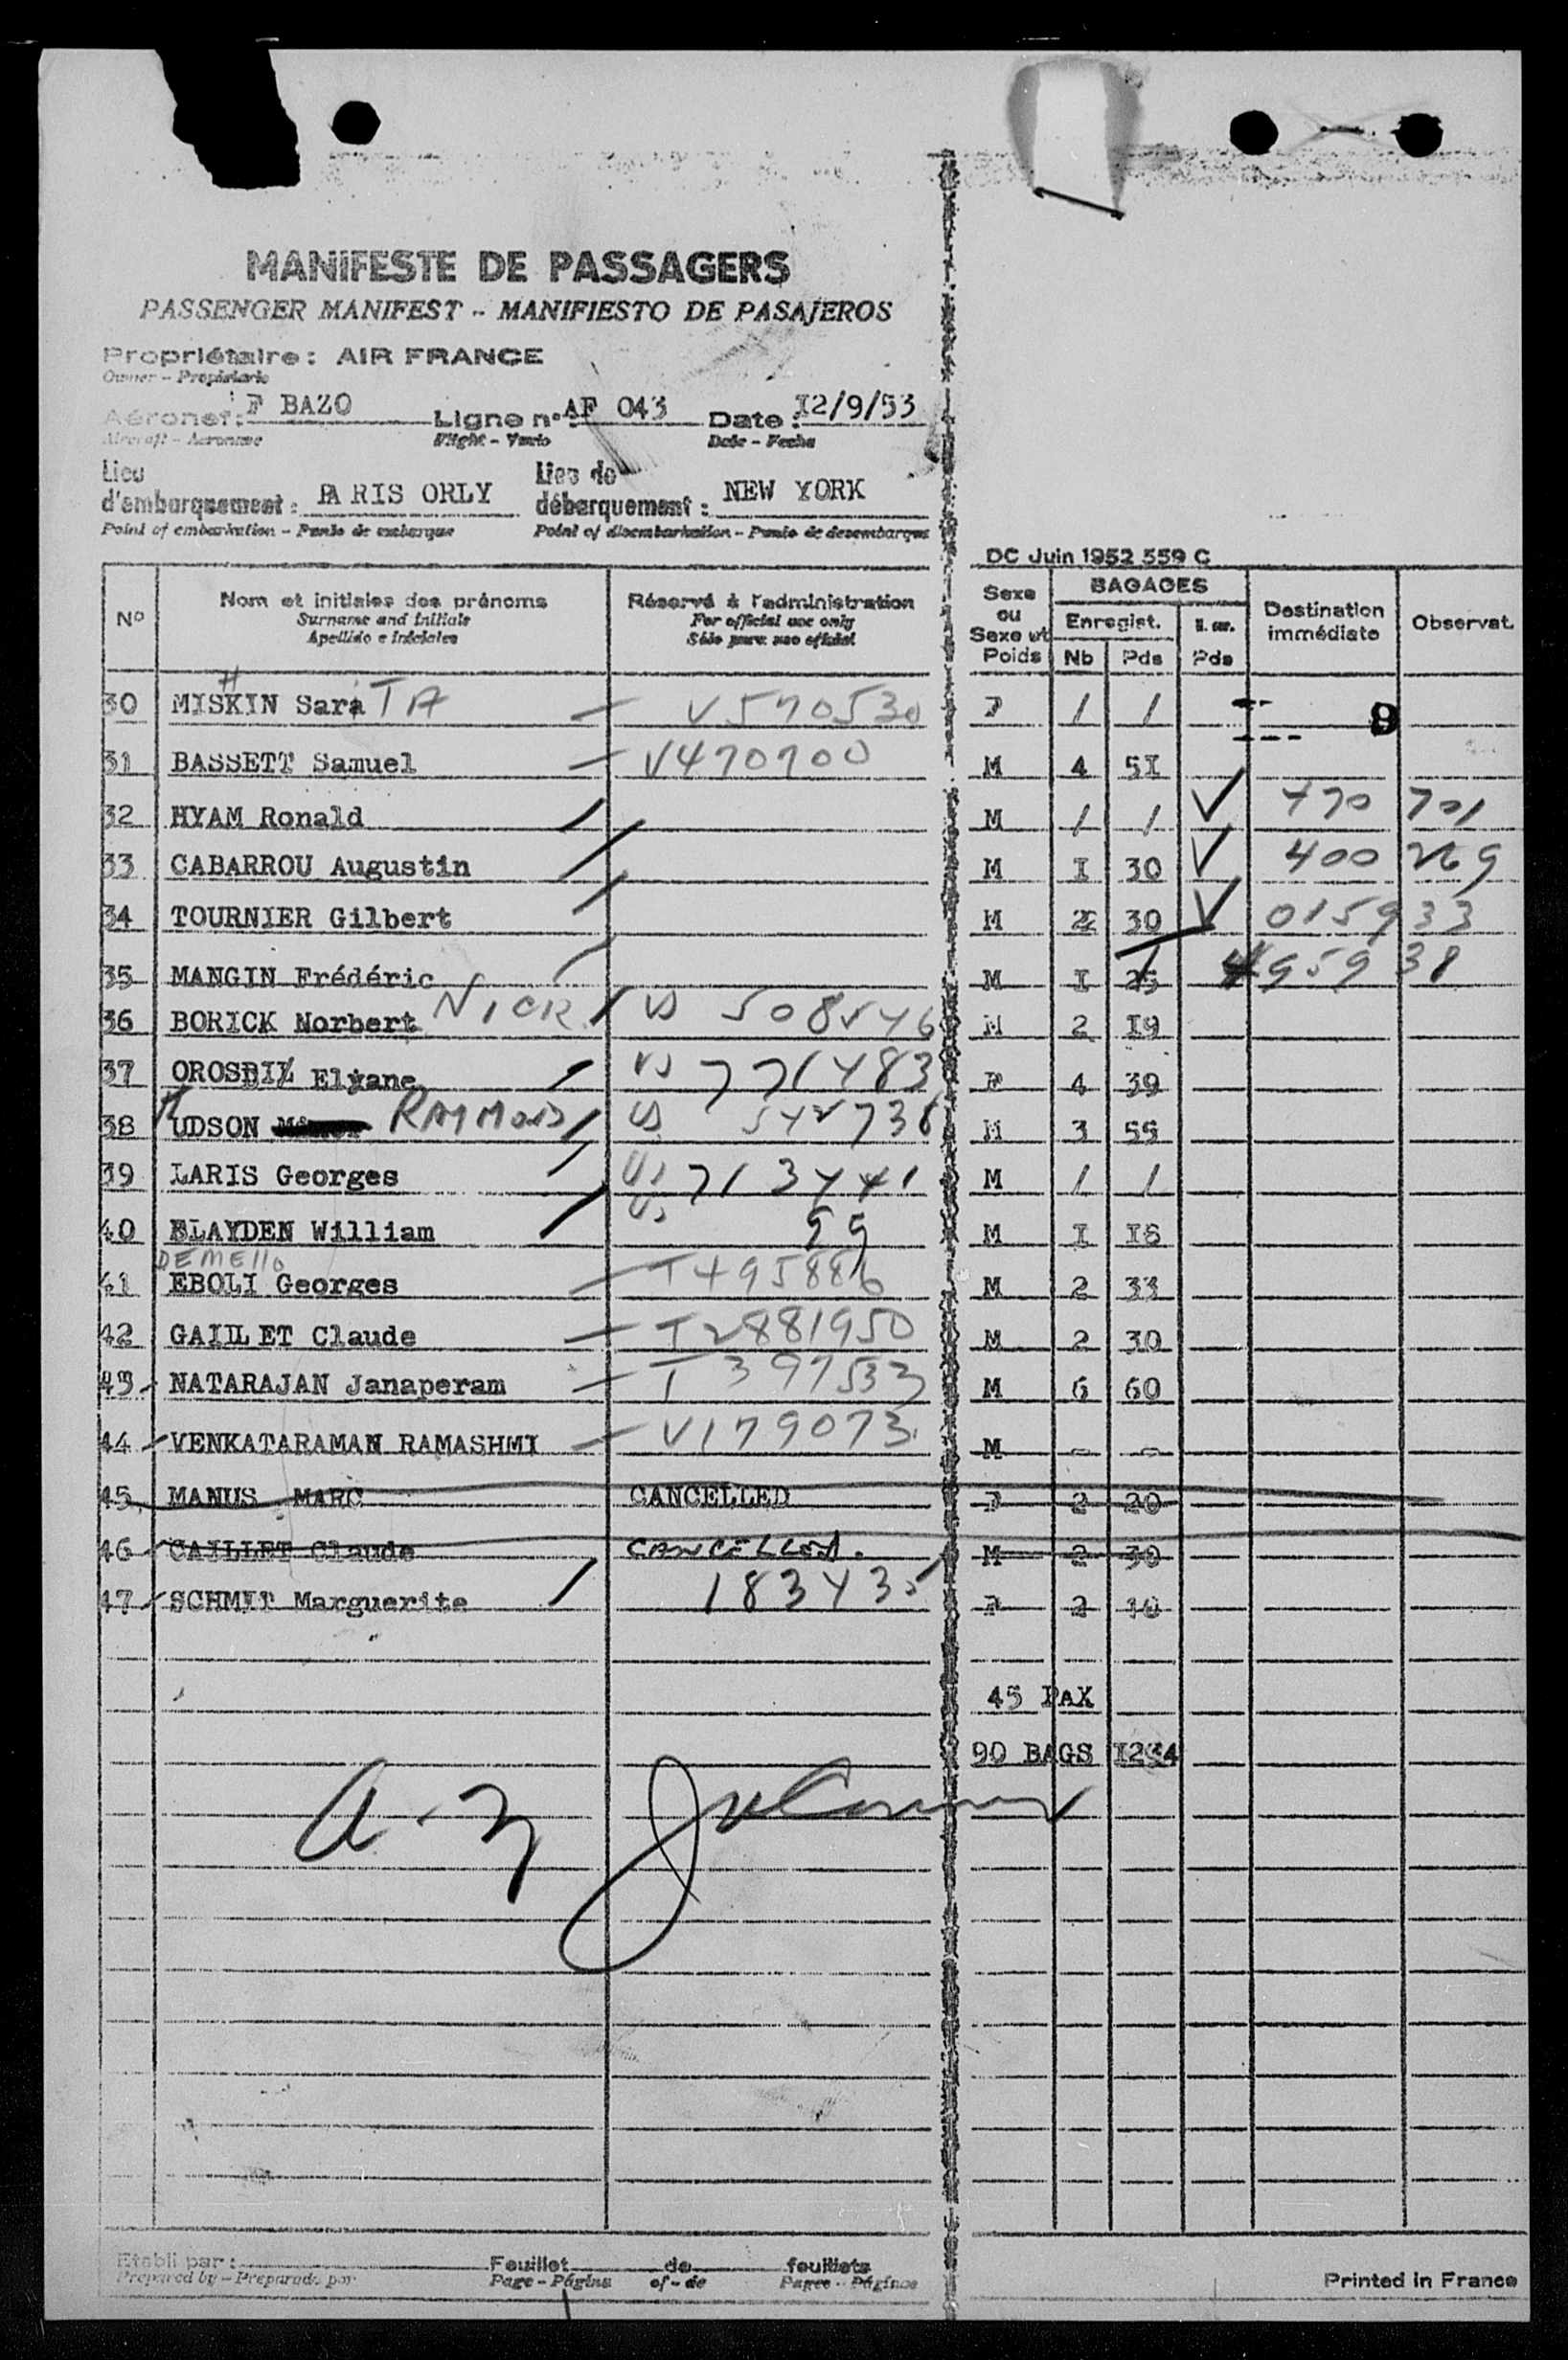 MANIFESTE DE PASSAGERS
PASSENGER MANIFEST - MANIFIESTO DE PASAJEROS
Propriétaire : AIR FRANCE
Owner - Propietario
Aéronef : F BAZO Ligne n° AF 043 Date : I2/9/53
Aircraft - Aeronave Flight - Vuelo Date - Fecha
Lieu d'embarquement : PA RIS ORLY Lieu de débarquement : NEW YORK
Point of embarkation - Punto de embarque Point of disembarkation - Punto de desembarque
DC Juin 1952 559 C
N° Nom et initiales des prénoms Réservé à l'administration Sexe ou Sexe et Poids BAGAGES Destination immédiate Observat.
Surname and initials For official use only Enregist.
Apellido e iniciales Sólo para uso oficial Nb Pds Pds
30 MISKIN Sara TA V570530 F / / 9
31 BASSETT Samuel V470700 M 4 5I
32 HYAM Ronald M / / 470 701
33 CABARROU Augustin M I 30 400 269
34 TOURNIER Gilbert M 2 30 015933
35 MANGIN Frédéric M I 25 495938
36 BORICK Norbert NICK US 508546 M 2 I9
37 OROSDIZ Elyane US 771483 F 4 39
38 HUDSON RAYMOND US 542736 M 3 55
39 LARIS Georges US 713441 M / /
40 BLAYDEN William US 59 M I I8
DEMELLO
41 EBOLI Georges T495886 M 2 33
42 GAILLET Claude T2881950 M 2 30
43 NATARAJAN Janaperam T397533 M 6 60
44 VENKATARAMAN RAMASHMI V179073 M - -
45 MANUS MARC CANCELLED F 2 20
46 CAILLET Claude CANCELLED. M 2 30
47 SCHMIT Marguerite 183435 F 2 18
45 PAX
90 BAGS I234
Etabli par : Feuillet de feuillets
Prepared by - Preparado por Page - Página of - de Pages - Páginas
Printed in France